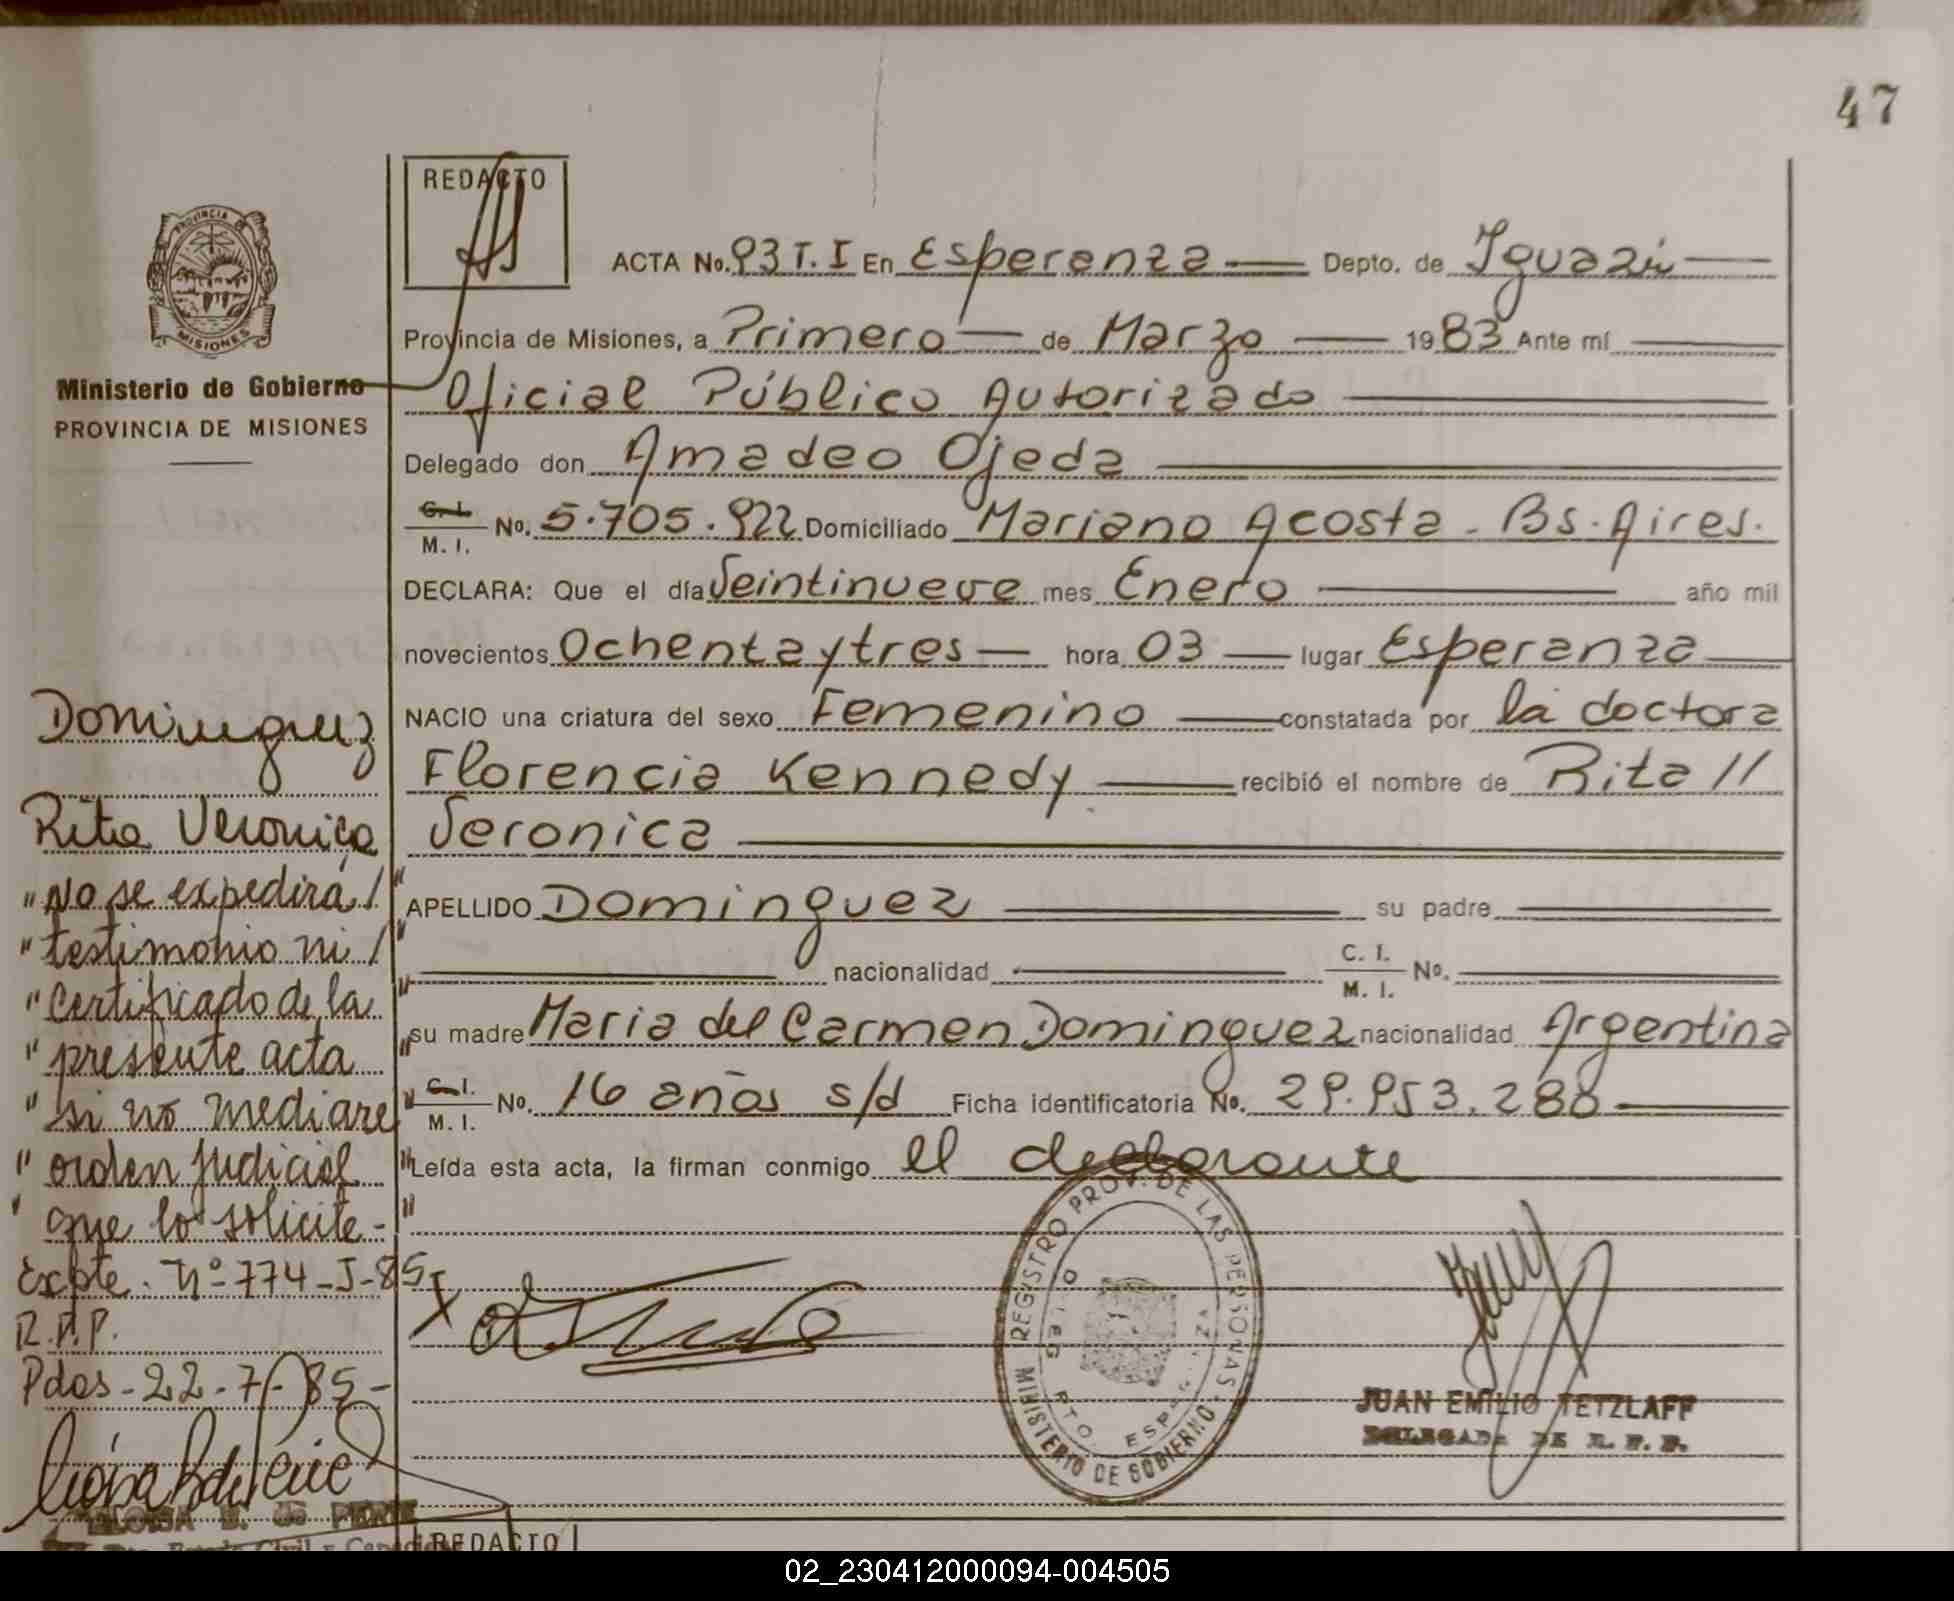 47
REDACTO
ACTA No. 93 T. I En Esperanza Depto. de Iguazú
Provincia de Misiones, a Primero de Marzo 1983 Ante mí
Oficial Público Autorizado
Delegado don Amadeo Ojeda
C. I.
M. I. No. 5.705.922 Domiciliado Mariano Acosta - Bs. Aires.
DECLARA: Que el día Veintinueve mes Enero año mil
novecientos Ochenta y tres hora 03 lugar Esperanza
NACIO una criatura del sexo Femenino constatada por la doctora
Florencia Kennedy recibió el nombre de Rita //
Veronica
APELLIDO Dominguez su padre
nacionalidad C. I.
M. I. No.
su madre Maria del Carmen Dominguez nacionalidad Argentina
C. I.
M. I. No. 16 años s/d Ficha identificatoria No. 29.953.280
Leída esta acta, la firman conmigo el declarante
PROVINCIA DE
MISIONES
Ministerio de Gobierno
PROVINCIA DE MISIONES
Dominguez
Rita Veronica
"No se expedirá /"
"testimonio ni /"
"Certificado de la"
"presente acta"
"si no mediare"
"orden judicial"
"que lo solicite-"
Expte. Nº 774-J-85
R.P.P.
Pdas - 22-7-85-
REGISTRO PROV. DE LAS PERSONAS
MINISTERIO DE GOBIERNO
JUAN EMILIO TETZLAFF
DELEGADO DE R. P. P.
REDACTO
02_230412000094-004505